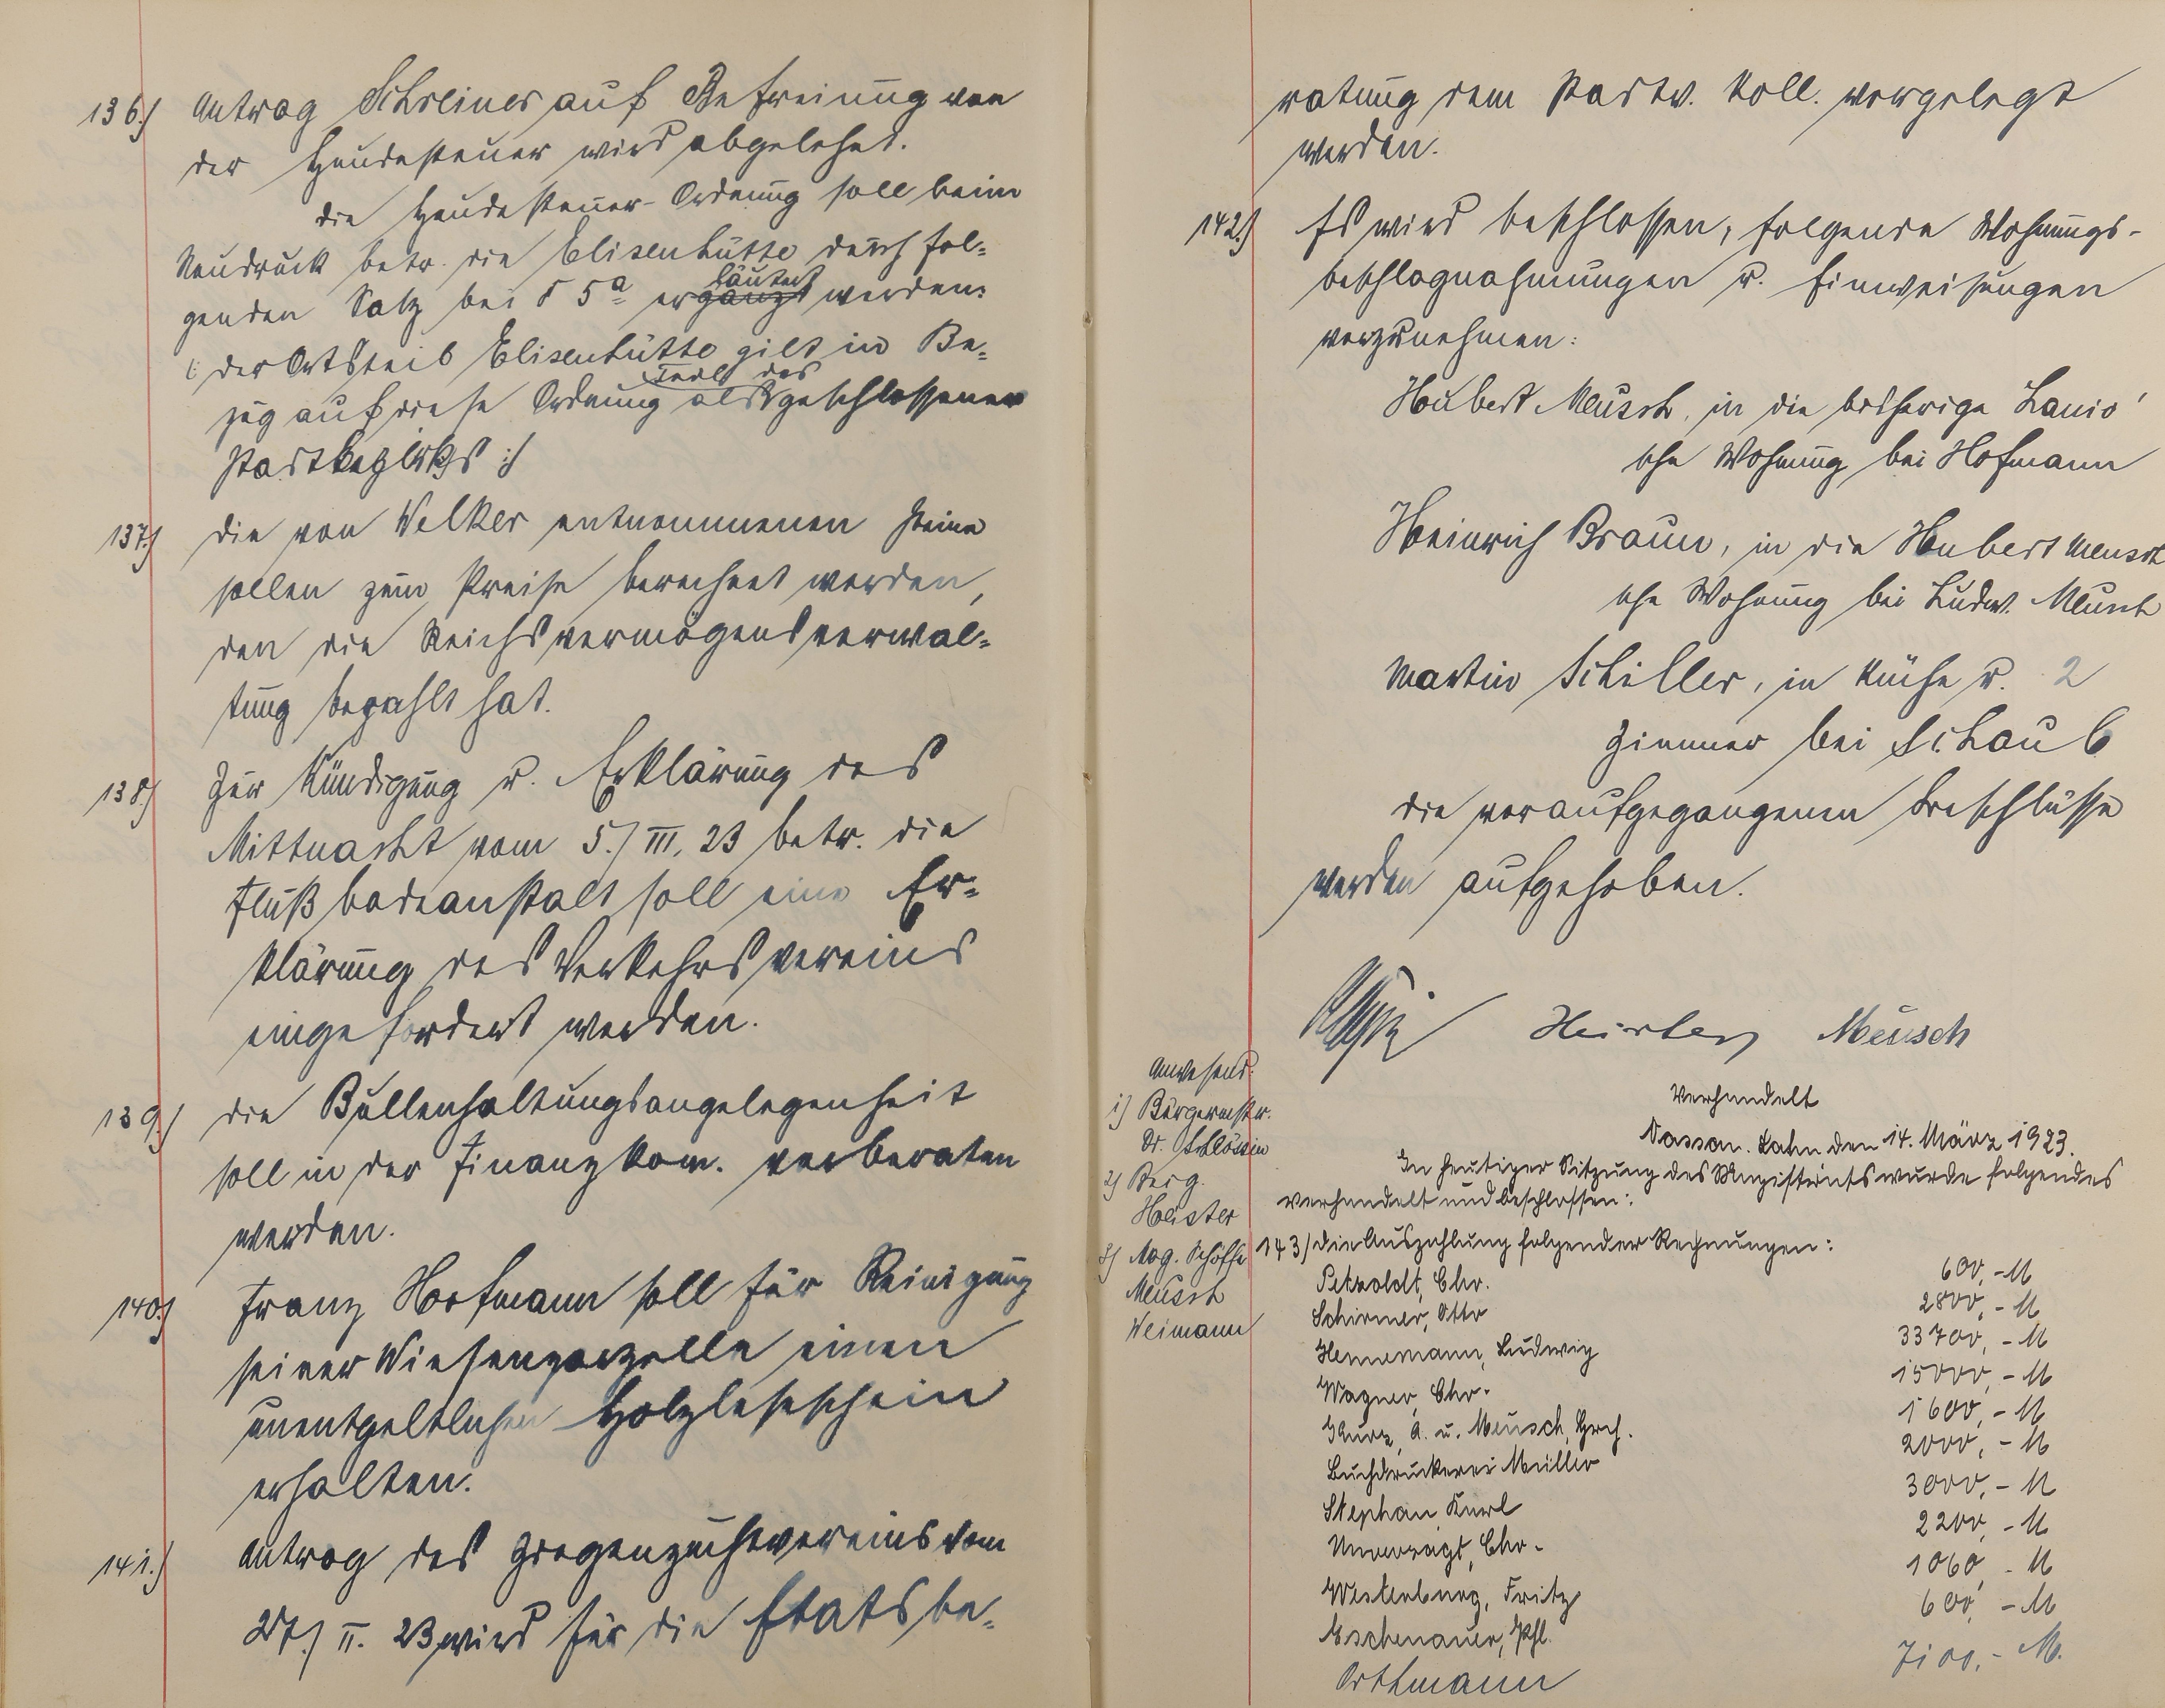 136.) Antrag Schreiner auf Befreiung von
der Hundesteuer wird abgelehnt.
Die Hundesteuer-Ordnung soll beim
Neudruck betr. die Elisenhütte durch fol=
genden Satz bei § 5a ergänzt läutert werden:
(: Der Ortsteil Elisenhütte gilt in Be=
zug auf diese Ordnung als Teil des geschlossenen
Stadtbezirks :)
137.) Die von Welker entnommenen Steine
sollen zum Preise berechnet werden,
den die Reichsvermögensverwal=
tung bezahlt hat.
138.) Zur Kündigung u. Erklärung des
Mittnacht vom 5./III. 23 betr. die
Flußbadeanstalt soll eine Er=
klärung des Verkehrsvereins
eingefordert werden.
139.) Die Bullenhaltungsangelegenheit
soll in der Finanzkom. vorberaten
werden.
140.) Franz Hofmann soll für Reinigung
seiner Wiesenparzelle einen
unentgeltlichen Holzleseschein
erhalten.
141.) Antrag des Ziegenzuchtvereins vom
27./II. 23 wird für die Etatsbe=
ratung dem Stadtv. Koll. vorgelegt
werden.
142.) Es wird beschlossen, folgende Wohnungs-
beschlagnahmungen u. Einweisungen
vorzunehmen:
Hubert Meusch, in die bisherige Lanio'
sche Wohnung bei Hofmann
Heinrich Braun, in die Hubert Meusch
sche Wohnung bei Ludw. Meusch
Martin Schiller, in Küche u. 2
Zimmer bei Schaub
Die voraufgegangenen Beschlüsse
werden aufgehoben.
Meusch
Anwesend:
1) Bürgermstr.
Dr. Schlössin
2) Beig.
Heister
3) Mag. Schöffe
Meusch
Weimann
Verhandelt
Nassau. Lahn den 14. März 1923.
In heutiger Sitzung des Magistrats wurde folgendes
verhandelt und beschlossen:
143) Die Auszahlung folgender Rechnungen:
Petzoldt, Chr. 600,- M
Schirmer, Otto 2800,- M
Hennemann, Ludwig 33700,- M
Wagner, Chr. 15000,- M
Kurz, A. u. Meusch, Hrch. 1600,- M
Buchdruckerei Müller 2000,- M
Stephan Karl 3000,- M
Unverzagt, Chr. 2200,- M
Westerburg, Fritz 1060,- M
Eschenauer, Phl. 600,- M
Orthmann 7100,- M.